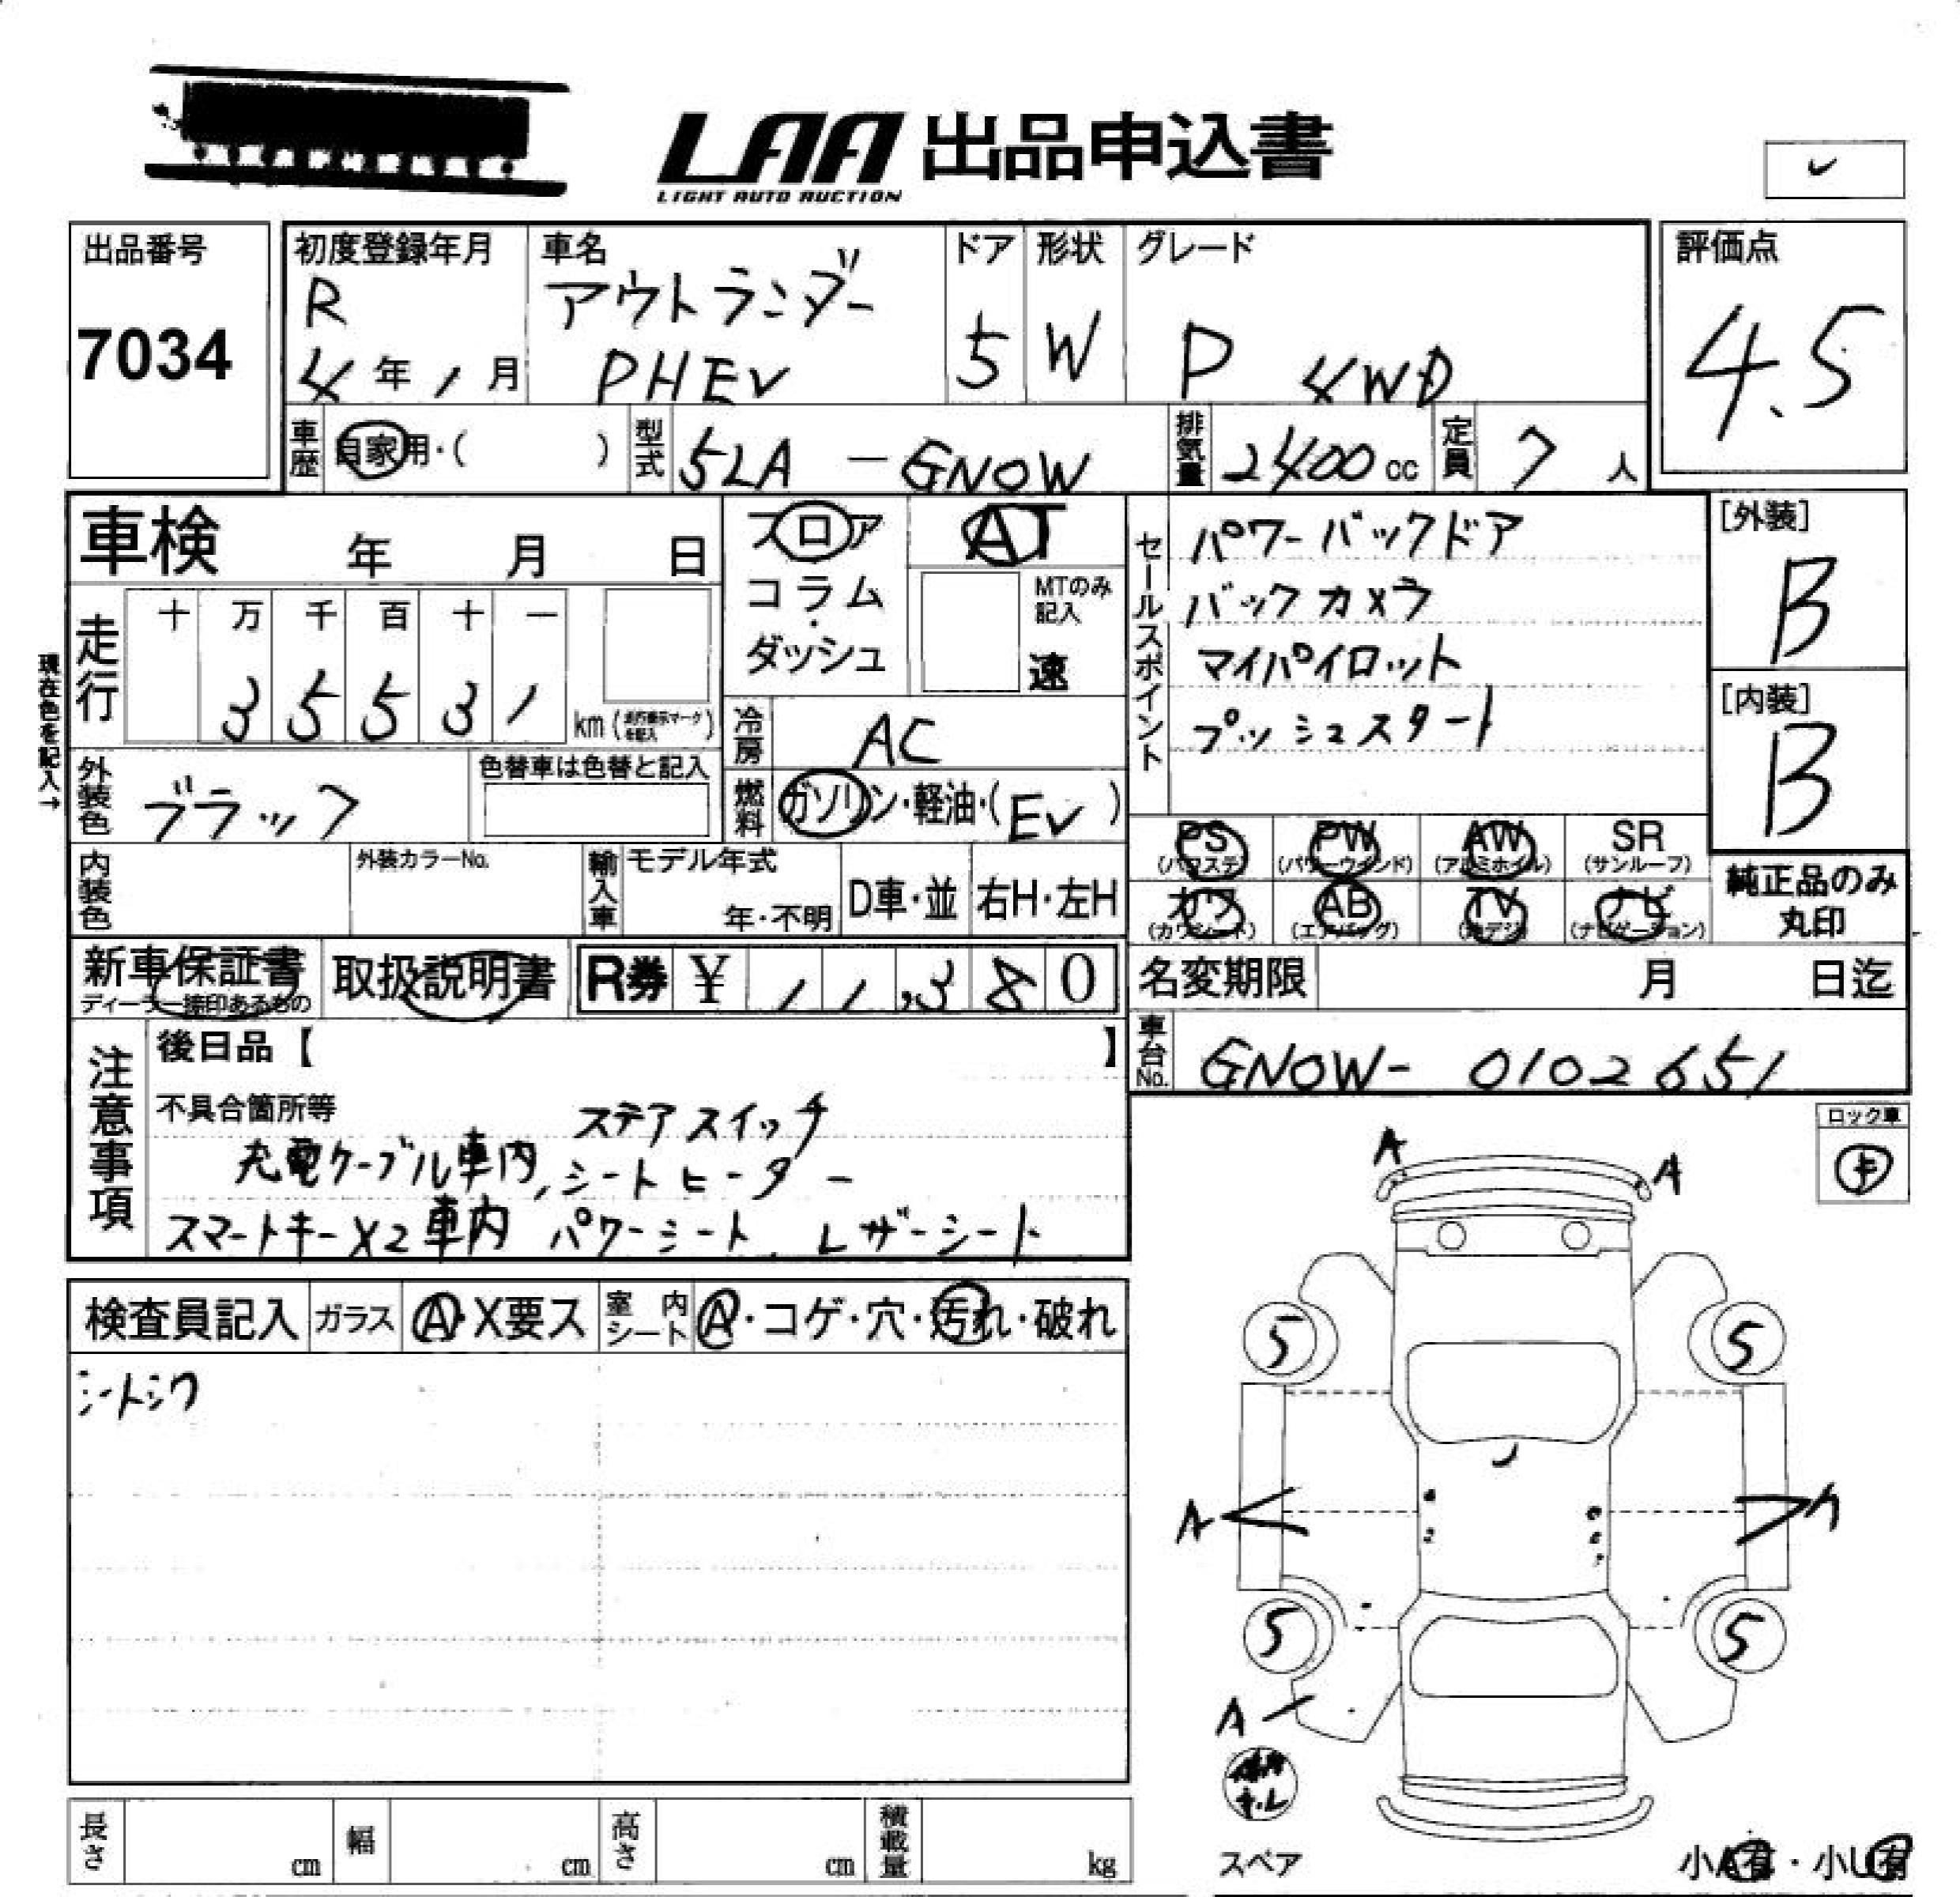 LAA 出品申込書
LIGHT AUTO AUCTION
出品番号
7034
初度登録年月
R
4年1月
車名
アウトランダー
PHEV
ドア
5
形状
W
グレード
P 4WD
評価点
4.5
車歴
自家用・( )
型式
5LA-GN0W
排気量
2400cc
定員
7人
車検 年 月 日
フロア
コラム
ダッシュ
AT
MTのみ記入
速
セールスポイント
パワーバックドア
バックカメラ
マイパイロット
プッシュスタート
[外装]
B
[内装]
B
現在色を記入→
走行
十 万 千 百 十 一
3 5 5 3 1
km(走行表示マークを記入)
冷房
AC
外装色
ブラック
色替車は色替と記入
燃料
ガソリン・軽油・(EV)
PS
(パワステ)
PW
(パワーウインド)
AW
(アルミホイル)
SR
(サンルーフ)
カワ
(カワシート)
AB
(エアバッグ)
TV
(地デジ)
ナビ
(ナビゲーション)
純正品のみ
丸印
内装色
外装カラーNo.
輸入車
モデル年式
年・不明
D車・並
右H・左H
新車保証書
ディーラー捺印あるもの
取扱説明書
R券 ¥ 11,380
名変期限 月 日迄
車台No.
GN0W-0102651
注意事項
後日品【 】
不具合箇所等
ステアスイッチ
充電ケーブル車内、シートヒーター
スマートキーX2車内 パワーシート、レザーシート
ロック車
キ
検査員記入
ガラス
A・X要ス
室内シート
A・コゲ・穴・汚れ・破れ
シートシワ
A
A
5
5
A
5
5
A
スペア
小A有・小U有
長さ cm
幅 cm
高さ cm
積載量 kg